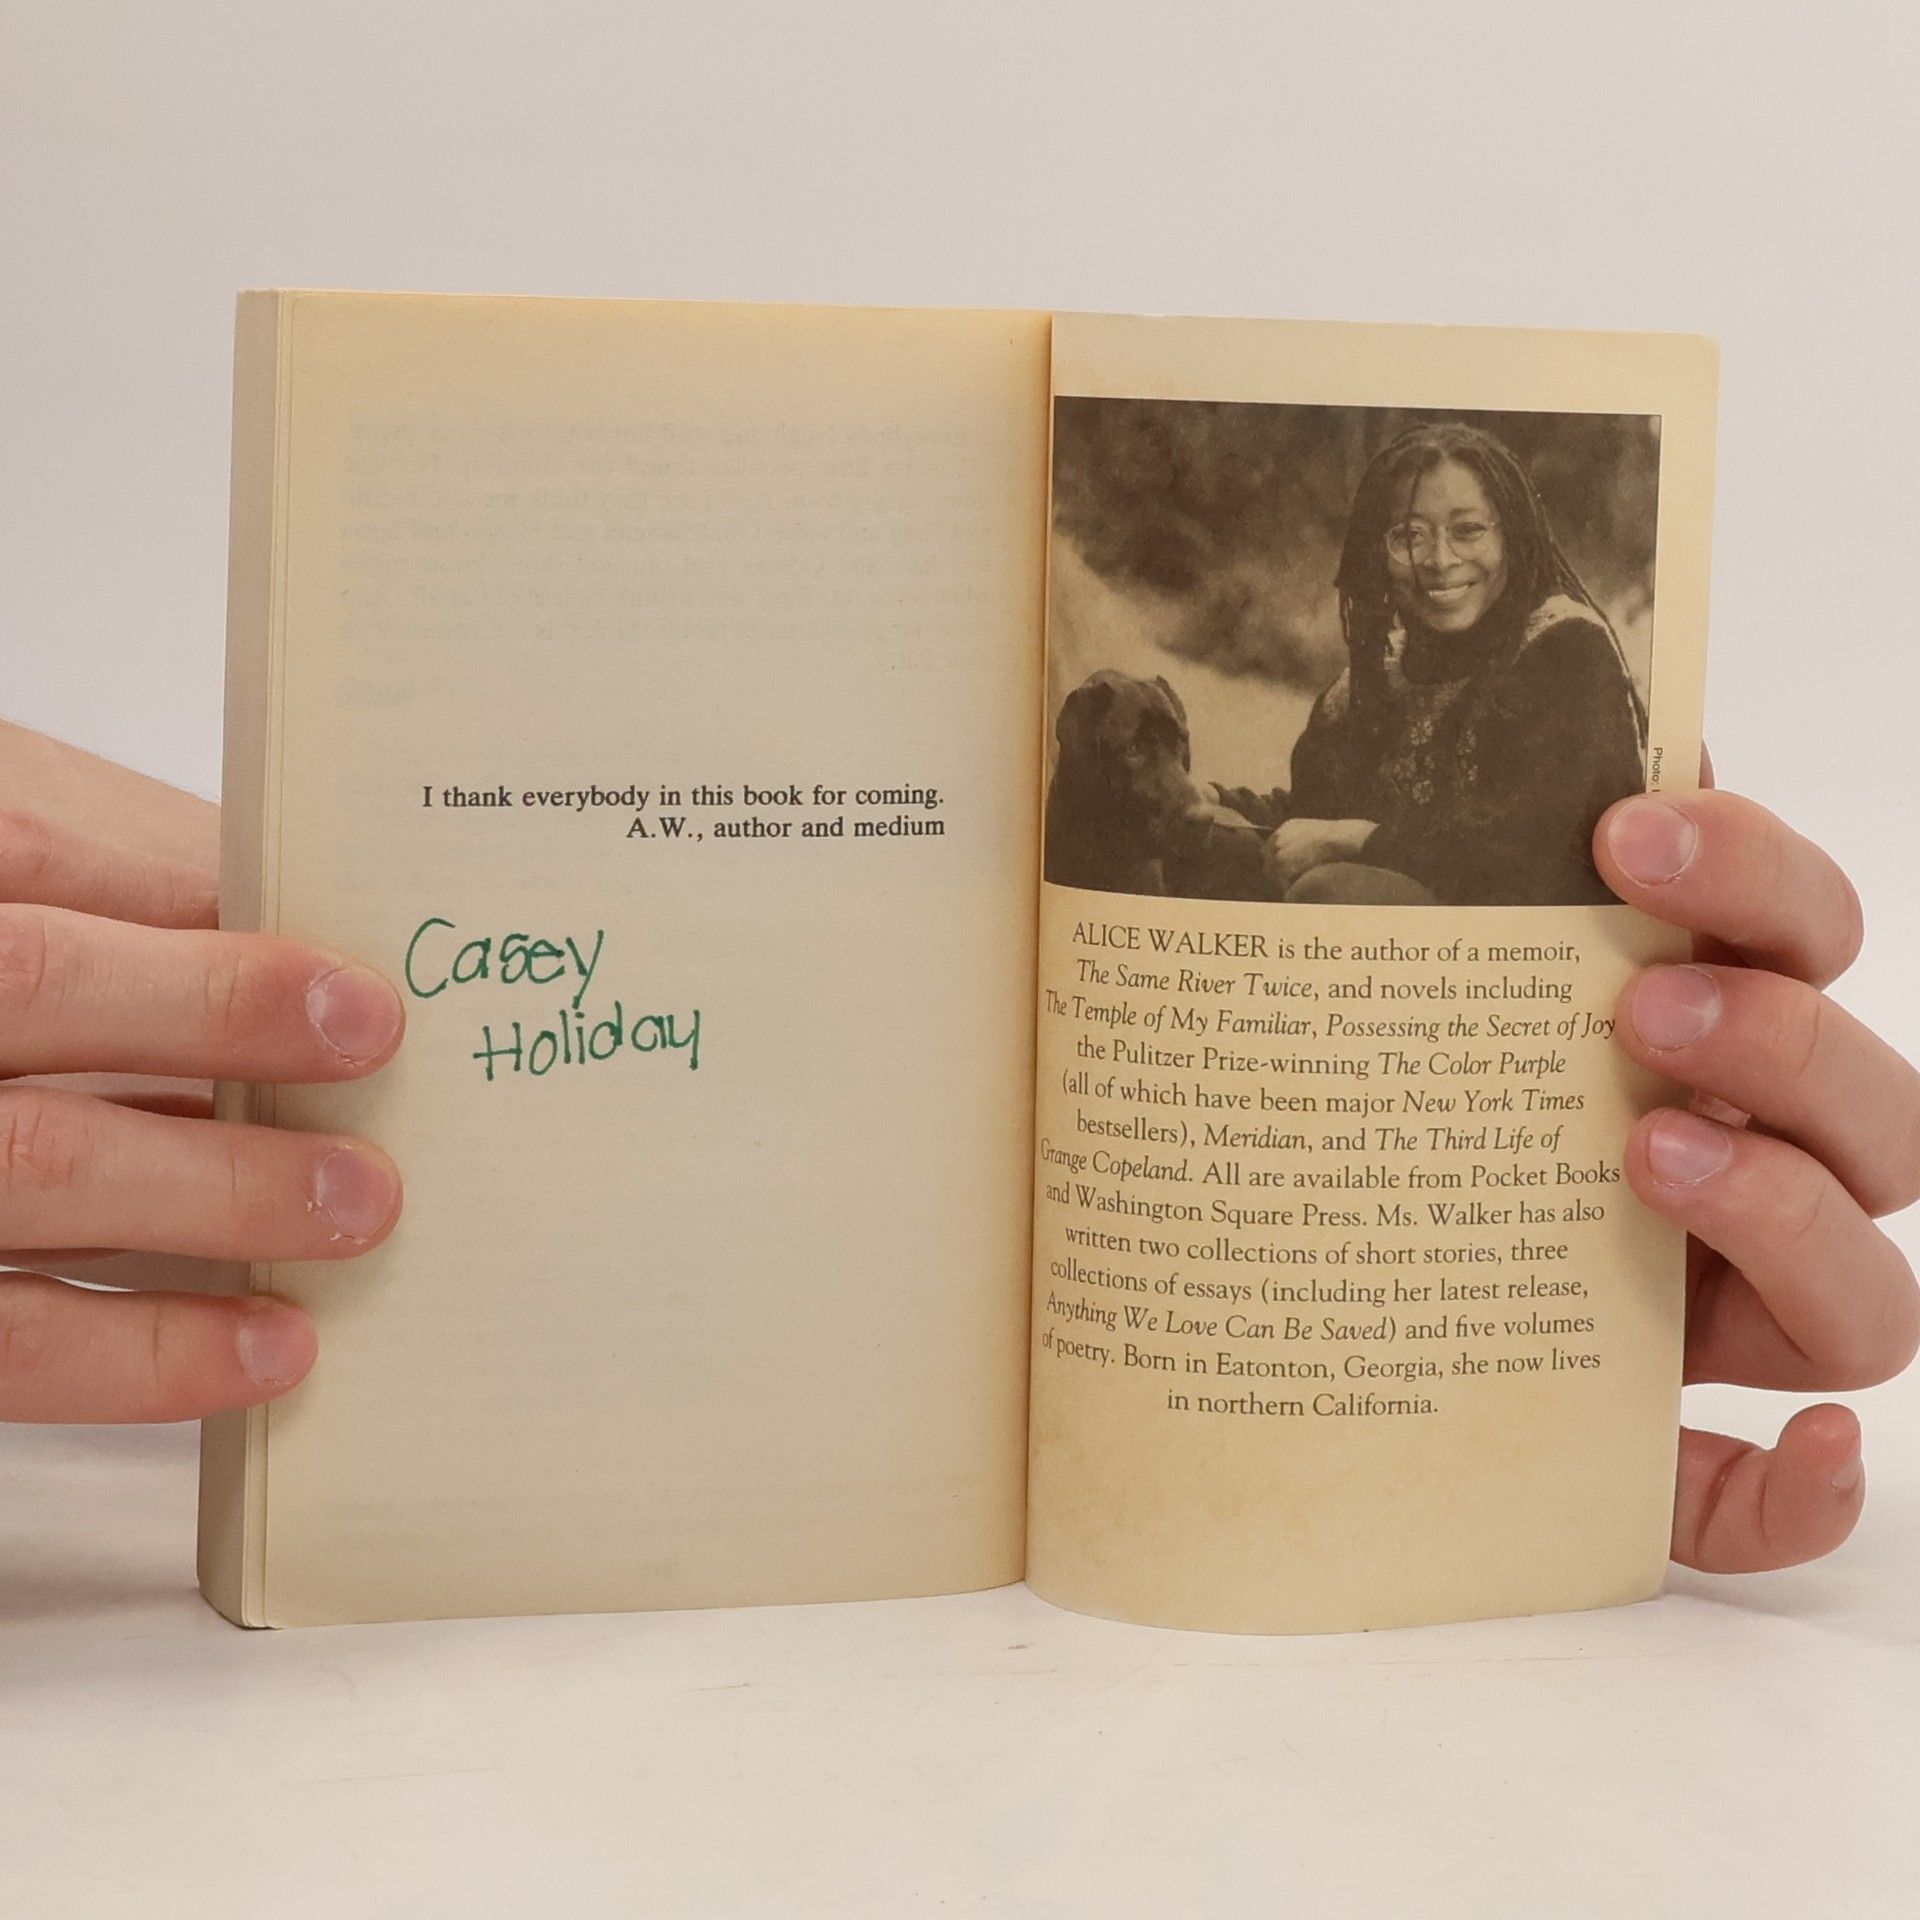 I thank everybody in this book for coming.
A.W., author and medium
Casey
Holiday
Photo:
ALICE WALKER is the author of a memoir,
The Same River Twice, and novels including
The Temple of My Familiar, Possessing the Secret of Joy
the Pulitzer Prize-winning The Color Purple
(all of which have been major New York Times
bestsellers), Meridian, and The Third Life of
Grange Copeland. All are available from Pocket Books
and Washington Square Press. Ms. Walker has also
written two collections of short stories, three
collections of essays (including her latest release,
Anything We Love Can Be Saved) and five volumes
of poetry. Born in Eatonton, Georgia, she now lives
in northern California.